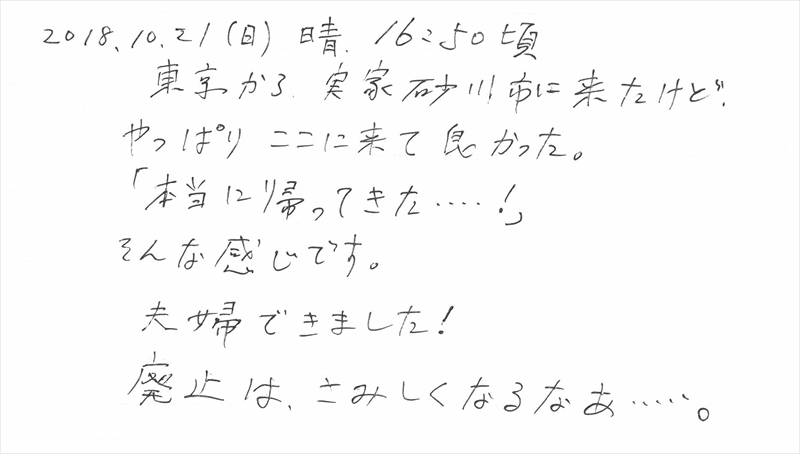 2018.10.21(日) 晴. 16:50頃
東京から 実家砂川市に来たけど、
やっぱり ここに来て 良かった。
「本当に帰ってきた……!」
そんな感じです。
夫婦できました!
廃止は、さみしくなるなあ……。